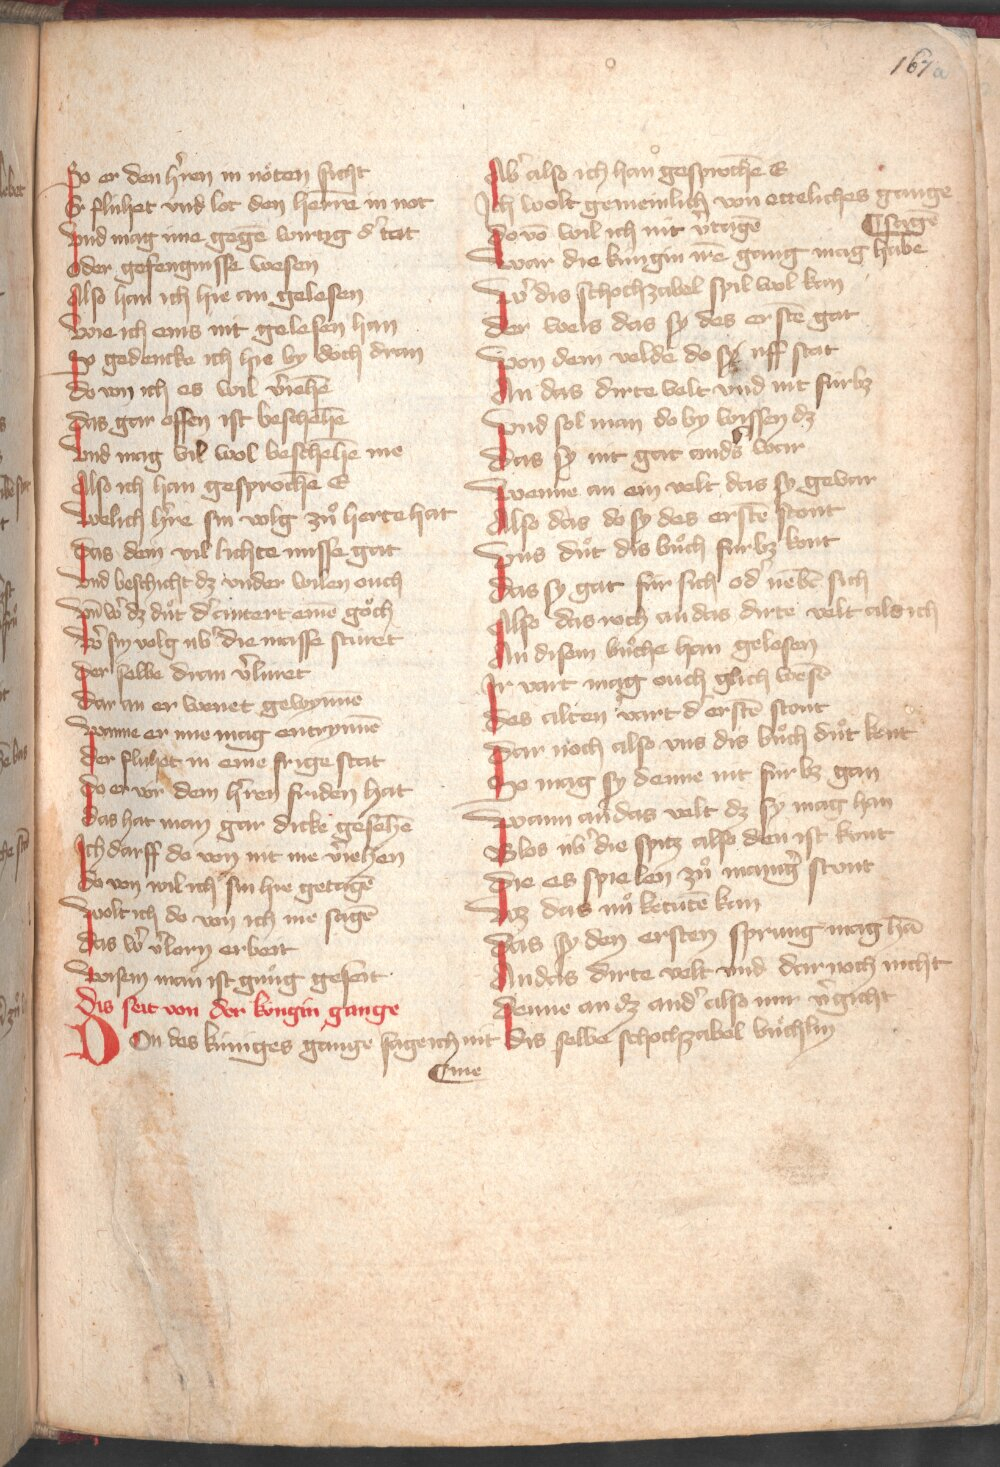 167a
So er den hrͤen in noͤten sicht
Er fluhet vnd lot den herrē in not
Vnd mag ime gegē wirtzg dʼ tat
Oder gefengnisse wesen
Also han ich hie an gelesen
Wie ich eins nit gelesen han
So gedencke ich hie by doch dran
Do von ich es wil v̾iehē
Das gar offen ist beschehē
Vnd mag vil wol beschehē me
Also ich han gesprochē E
Welich hr̾e sin volg zuͦ herte hat
Das dem vil lichte misse gat
Vnd beschicht dz vnder wilen ouch
Vn̄ w̾ dz duͦt d̾ eintert eine goͧch
W̾ sin volg vb̾ die masse sturet
Der selbe dran v̾lúret
Dar an er wenet gewynnē
Wanne er ime mag entrynnē
Der fluhet in eine frige stat
Do er vor dem hr̾en friden hat
Das hat man gar dicke gesehē
Ich darff do von nit me v̾iehen
Do von wil ich sin hie getagē
Wolt ich do von ich me sagē
Das w̾ v̾lorn erbeit
Wisem man ist gnuͦg geseit
Dis seit von der kúngin gange
Von des kúniges gange sage ich nit
me
Ab̾ also ich han gesprochē E
Ich wolt gemeinlich von etteliches gange
sagē
Do vō wil ich nit v̾tagē
War die kúngin irē gang mag habē
W̾ dis schochzabel spil wol kan
Der weis das sy des erstē gat
Von dem velde do sy uff stat
An das dirte velt vnd nit fúrbz
Vnd sol man do by wissen dz
Das sy nit gat anders war
Wenne an ein velt das sy gevar
Also das do sy des erstē stont
Vns duͦt dis buͦch fúrbz kont
Das sy gat fúr sich od̾ nebē sich
Also das roch an das dirte velt als ich
An disem buͦche han gelesen
Ir vart mag ouch glich wesē
Des alten vart d̾ erstē stont
Dar noch also vns dis buͦch duͦt kont
So mag sy denne nit fúrbz gan
Wann an das velt dz sy mag han
Blos vb̾ die spitz also den ist kont
Die es spielen zuͦ manig̾ stont
Wz das nuͦ ketutē kan
Das sy den ersten sprung mag hā
An das dirte velt vnd dar noch nicht
Denne an dz and̾ also mir v̾gicht
Dis selbe schochzabel buͤchlin